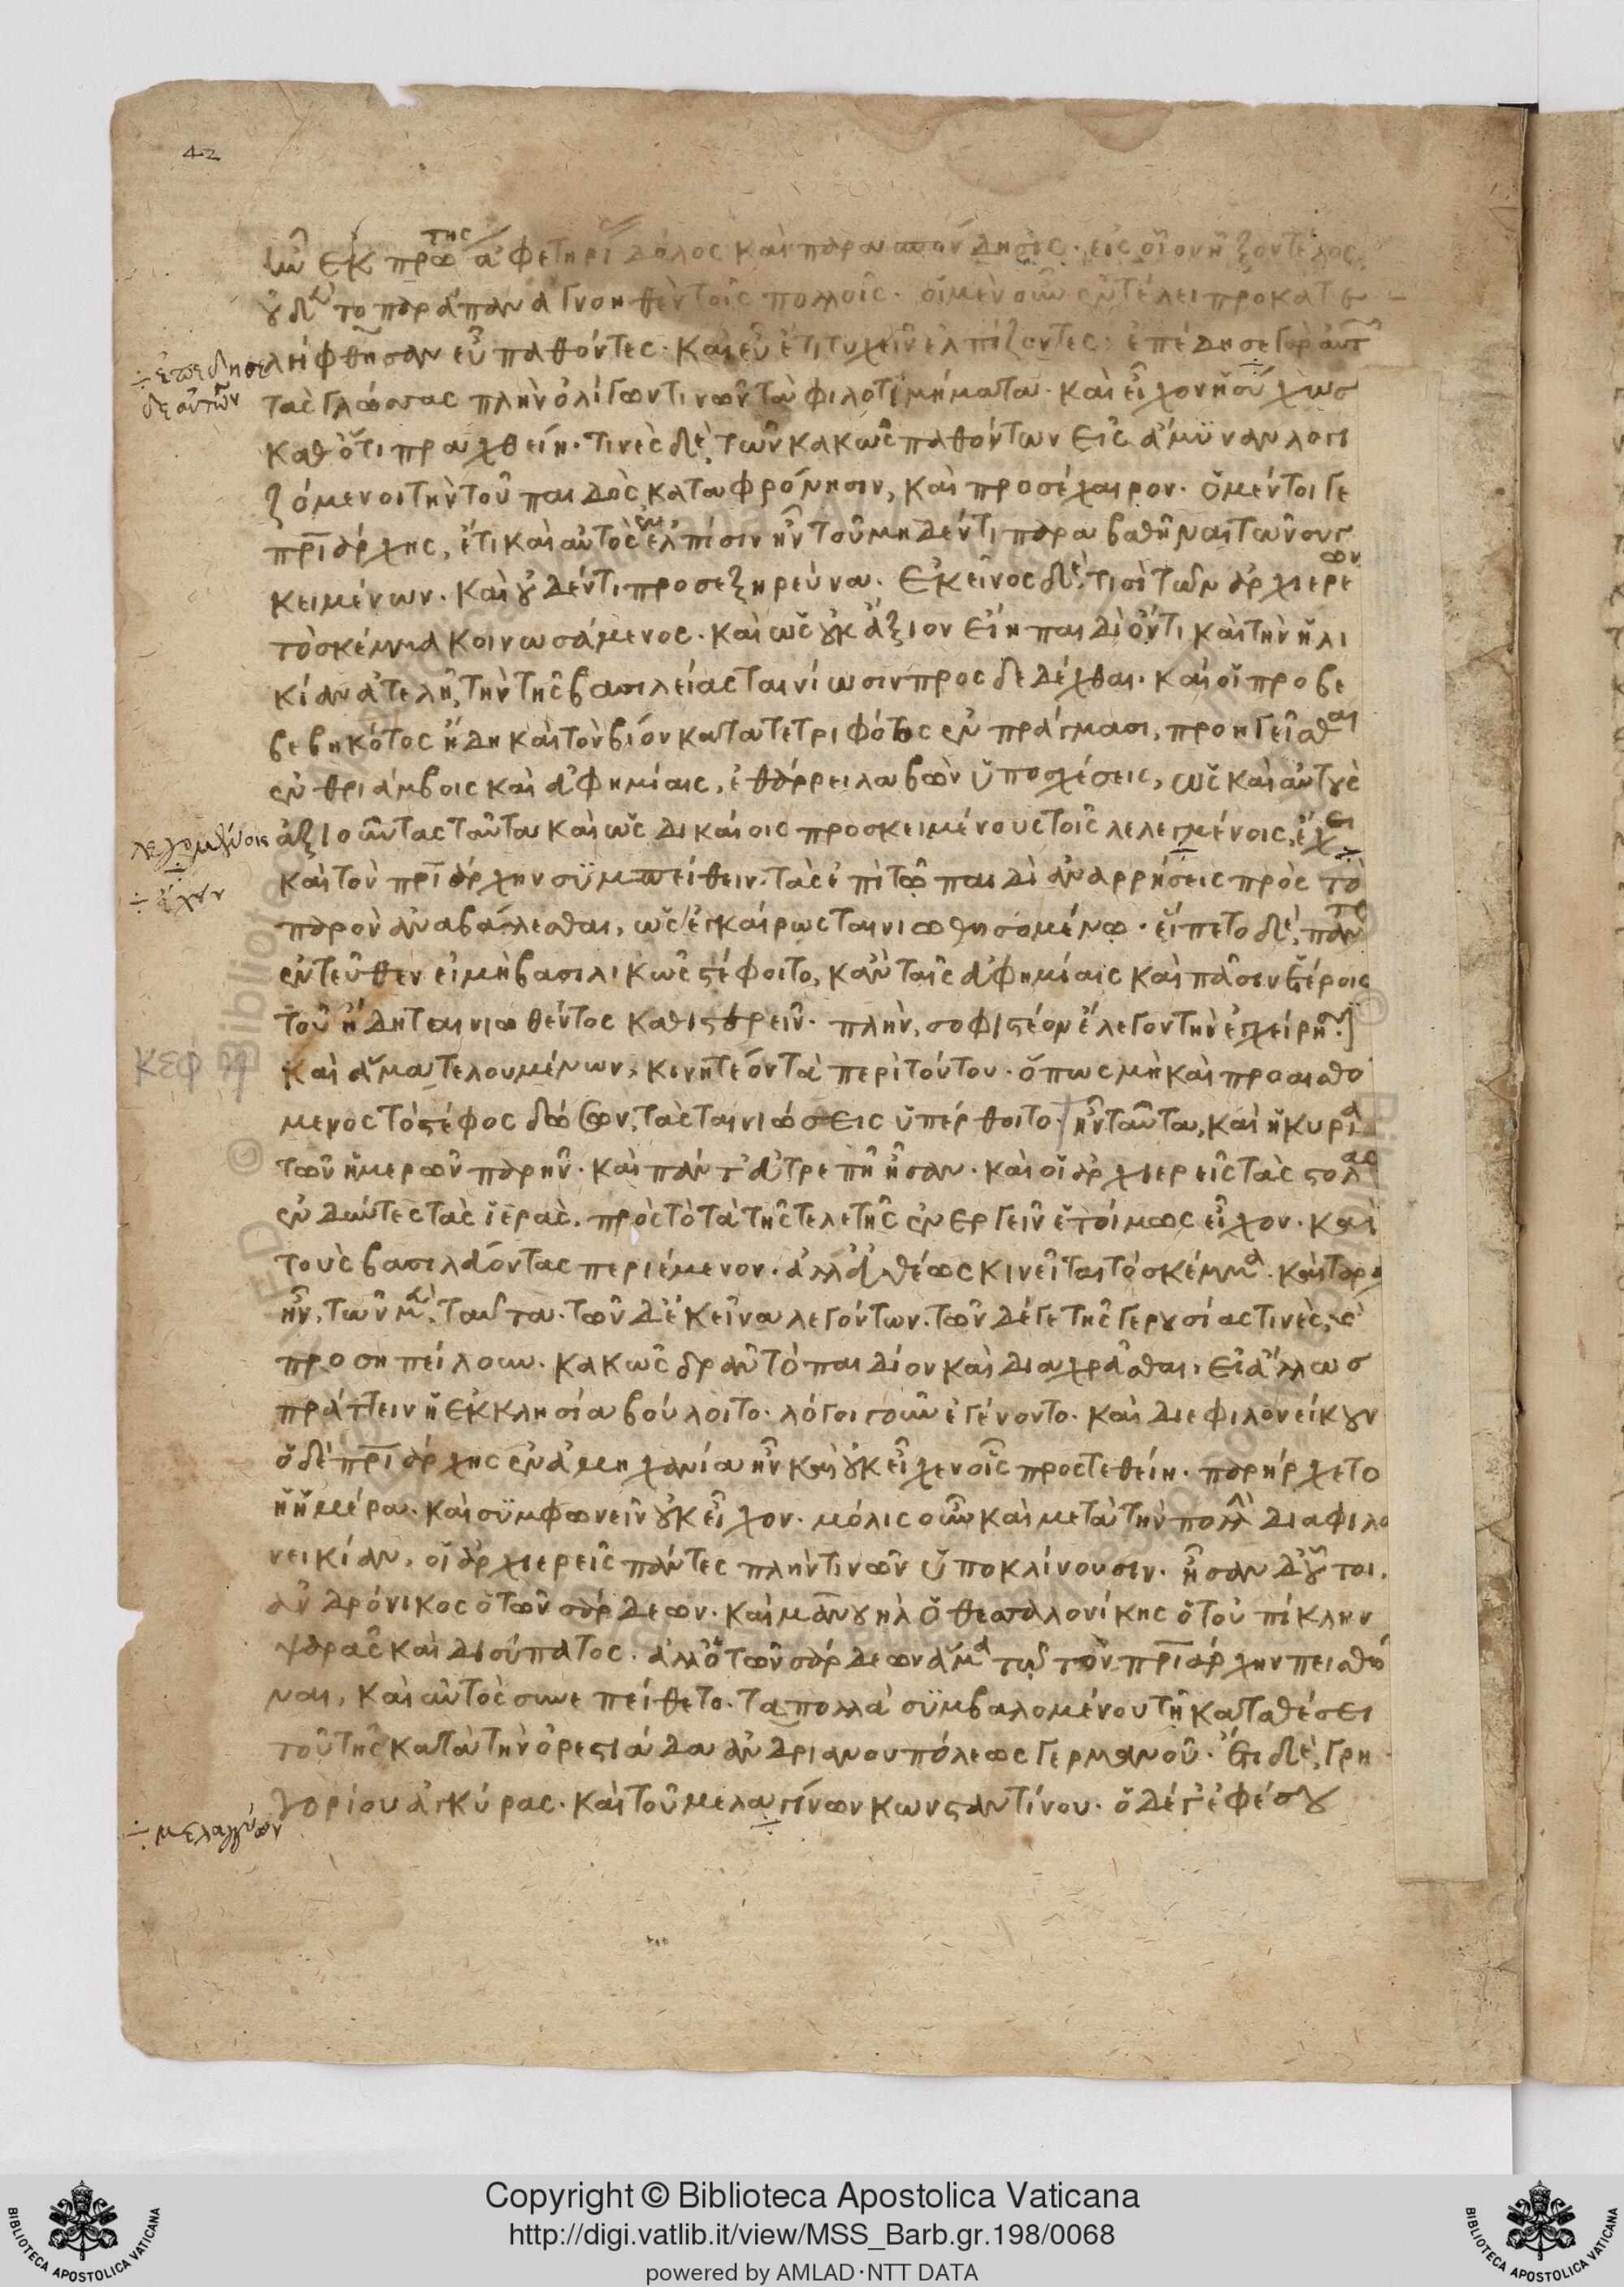 42
ἦν ἐκ πρώτης ἀφετηρί δόλος καὶ παρασπόνδησις· εἰς οἷον ἥξον τέλος
οὐδὲ τὸ παράπαν ἀγνοηθὲν τοῖς πολλοῖς· οἱ μὲν οὖν ἐν τέλει προκατε
λήφθησαν εὖ παθόντες· καὶ εὖ ἔτι τυχεῖν ἐλπίζοντες· ἐπέδησε γὰρ αὐτ
ἐπέδησε
δε αὐτῶν
τὰς γλώσσας πλὴν ὀλίγων τινῶν τὰ φιλοτιμήματα· καὶ εἶχον ἡσύχως
καθότι πραχθείη· τινὲς δὲ, τῶν κακῶς παθόντων εἰς ἄμυναν λογι
ζόμενοι τὴν τοῦ παιδὸς καταφρόνησιν, καὶ προσέχαιρον· ὁ μέντοι γε
πριάρχης, ἔτι καὶ αὐτὸς ἐν ἐλπίσιν ἦν τοῦ μηδέν τι παραβαθῆναι τῶν συγ
κειμένων· καὶ οὐδέν τι προσεξηρεύνα· ἐκεῖνος δὲ, τισὶ τῶν ἀρχιερέων
τὸ σκέμμα κοινωσάμενος· καὶ ὡς οὐκ ἄξιον εἴη παιδὶ ὄντι καὶ τὴν ἡλι
κίαν ἀτελῆ, τὴν τῆς βασιλείας ταινίωσιν προσδεδέχθαι· καὶ οἱ προβε
βεβηκότος ἤδη καὶ τὸν βίον κατατετριφότος ἐν πράγμασι, προηγεῖσθαι
ἐν θριάμβοις καὶ εὐφημίαις, ἐθάρρει λαβὼν ὑποσχέσεις, ὡς καὶ αὐτοὺς
ἀξιοῦντας ταῦτα καὶ ὡς δικαίοις προσκειμένους τοῖς λελεγμένοις, ἔχει
καὶ τὸν πριάρχην συμπείθειν· τὰς ἐπὶ τῷ παιδὶ ἀναρρήσεις πρὸς τὸ
ἔχειν
παρὸν ἀναβάλλεσθαι, ὡς ἐγκαίρως ταινιωθησομένῳ· εἵπετο δὲ, πάντως
ἐντεῦθεν εἰ μὴ βασιλικῶς στέφοιτο, κἀν ταῖς εὐφημίαις καὶ πᾶσιν ἑτέροις
τοῦ ἤδη ταινιωθέντος καθιστερεῖν· πλὴν, σοφιστέον ἔλεγον τὴν ἐγχείρησ
κεφ η
καὶ ἅμα τελουμένων, κινητέον τὰ περὶ τούτου· ὅπως μὴ καὶ προαισθό
μενος τὸ στέφος δώσων, τὰς ταινιώσεις ὑπέρθοιτο· ἦν ταῦτα, καὶ ἡ κυρία
τῶν ἡμερῶν παρῆν· καὶ πάντ᾽ εὐτρεπῆ ἦσαν· καὶ οἱ ἀρχιερεῖς τὰς στολὰς
ἐνδύντες τὰς ἱερὰς, πρὸς τὸ τὰ τῆς τελετῆς ἐνεργεῖν ἑτοίμως εἶχον· καὶ
τοὺς βασιλεύοντας περιέμενον· ἀλλ᾽ εὐθέως κινεῖται τὸ σκέμμα· καὶ ταρα
ἦν, τῶν μὲν, ταῦτα· τῶν δ᾽ ἐκεῖνα λεγόντων· τῶν δέ γε τῆς γερουσίας τινὲς,
προσηπείλουν· κακῶς δρᾶν τὸ παιδίον καὶ διαχρᾶσθαι, εἰ ἄλλως
πράττειν ἡ ἐκκλησία βούλοιτο· λόγοι γοῦν ἐγένοντο· καὶ διεφιλονείκουν
ὁ δὲ πριάρχης ἐν ἀμηχανία ἦν καὶ οὐκ εἶχεν οἷς προστεθείη· παρήρχετο
ἡ ἡμέρα· καὶ συμφωνεῖν οὐκ εἶχον· μόλις οὖν καὶ μετὰ τὴν πολλὴν διαφιλο
νεικίαν, οἱ ἀρχιερεῖς πάντες πλὴν τινῶν ὑποκλίνουσιν· ἦσαν δ᾽ οὗτοι,
ἀνδρόνικος ὁ τῶν σάρδεων· καὶ μανουὴλ ὁ θεσσαλονίκης ὁ τοὐπίκλην
ψαρᾶς καὶ δισύπατος· ἀλλ᾽ ὁ τῶν σάρδεων ἅμα τῷ τὸν πριάρχην πεισθῆ
ναι, καὶ αὐτὸς συνεπείθετο· τὰ πολλὰ συμβαλομένου τῆ καταθέσει
τοῦ τῆς κατὰ τὴν ὀρεστιάδα ἀνδριανουπόλεως γερμανοῦ· ἔτι δὲ, γρη
γορίου ἀγκύρας· καὶ τοῦ μελαγίνων κωνσταντίνου· ὁ δέ γ᾽ ἐφέσου
Copyright © Biblioteca Apostolica Vaticana
http://digi.vatlib.it/view/MSS_Barb.gr.198/0068
powered by AMLAD·NTT DATA
BIBLIOTECA APOSTOLICA VATICANA
BIBLIOTECA APOSTOLICA VATICANA